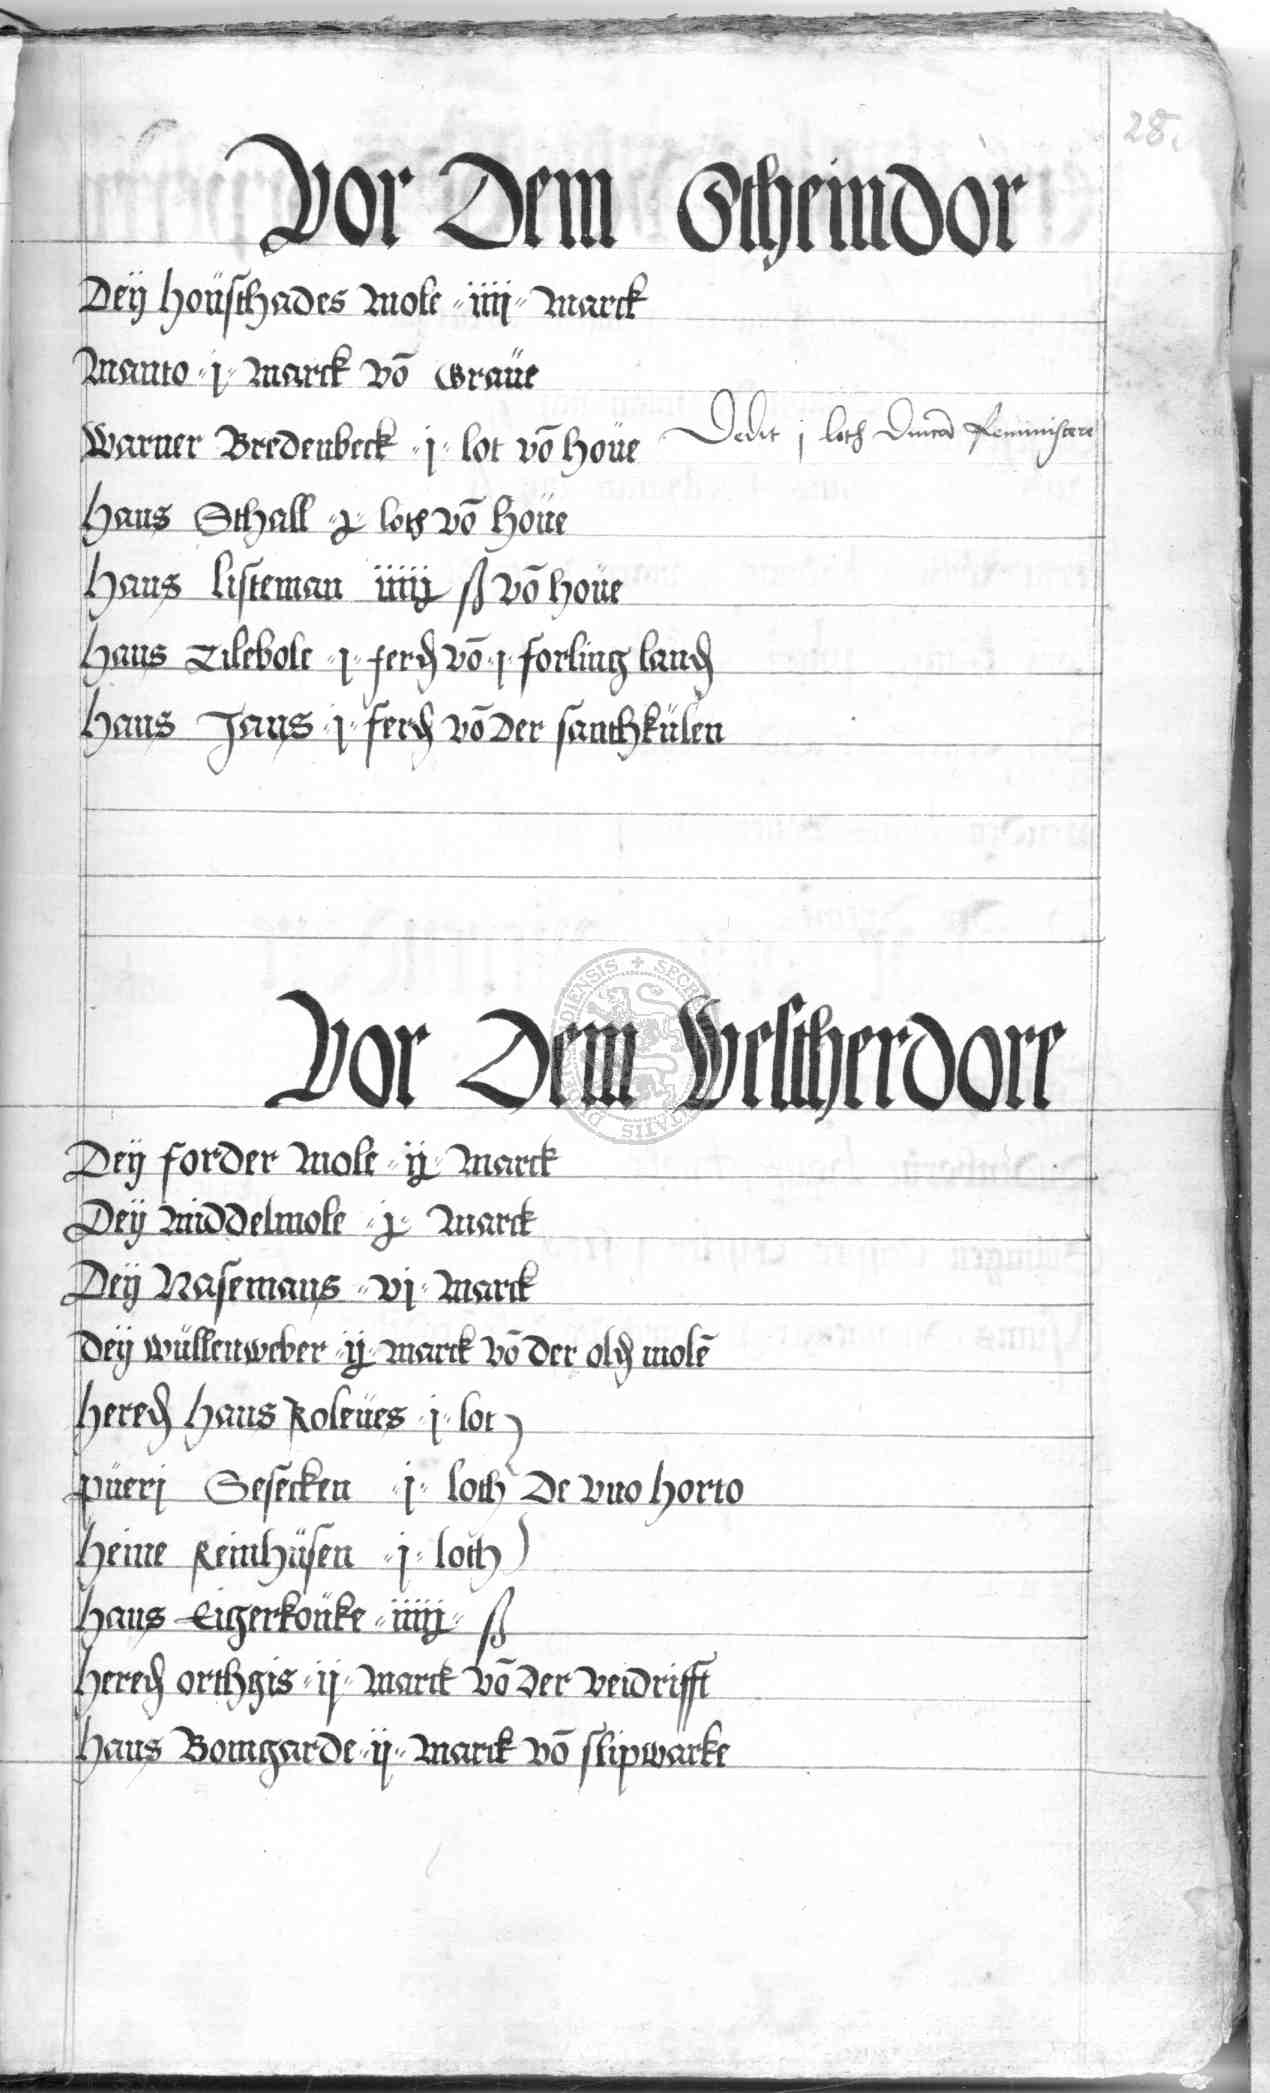 28.
Vor Dem Stheindor
Deÿ houschades Mole iiij Marck
Manto j Marck vō Graüe
Warner Bredenbeck j lot vō hoüe Dedit j loth Reminiscere
Hans Schall j loth vō Hoüe
Hans listeman iiiij ß vō hoüe
Hans Tilebole j ferd vō j forling land
Hans Jans j ferd vō der santhkülen
Vor Dem Gestherdore
Deÿ forder Mole ij Marck
Deÿ Middelmole j Marck
Deÿ Nasemans vj Marck
deÿ wüllenweber ij marck vō der old molē
hered Hans Roleües j lot
püeri Sesecken j loth De vno horto
heine Reinhüsen j loth
Hans Eigerkoüke iiiij ß
hered orthgis ij Marck vō der veidrifft
hans Bomgarde ij Marck vō slipwarke